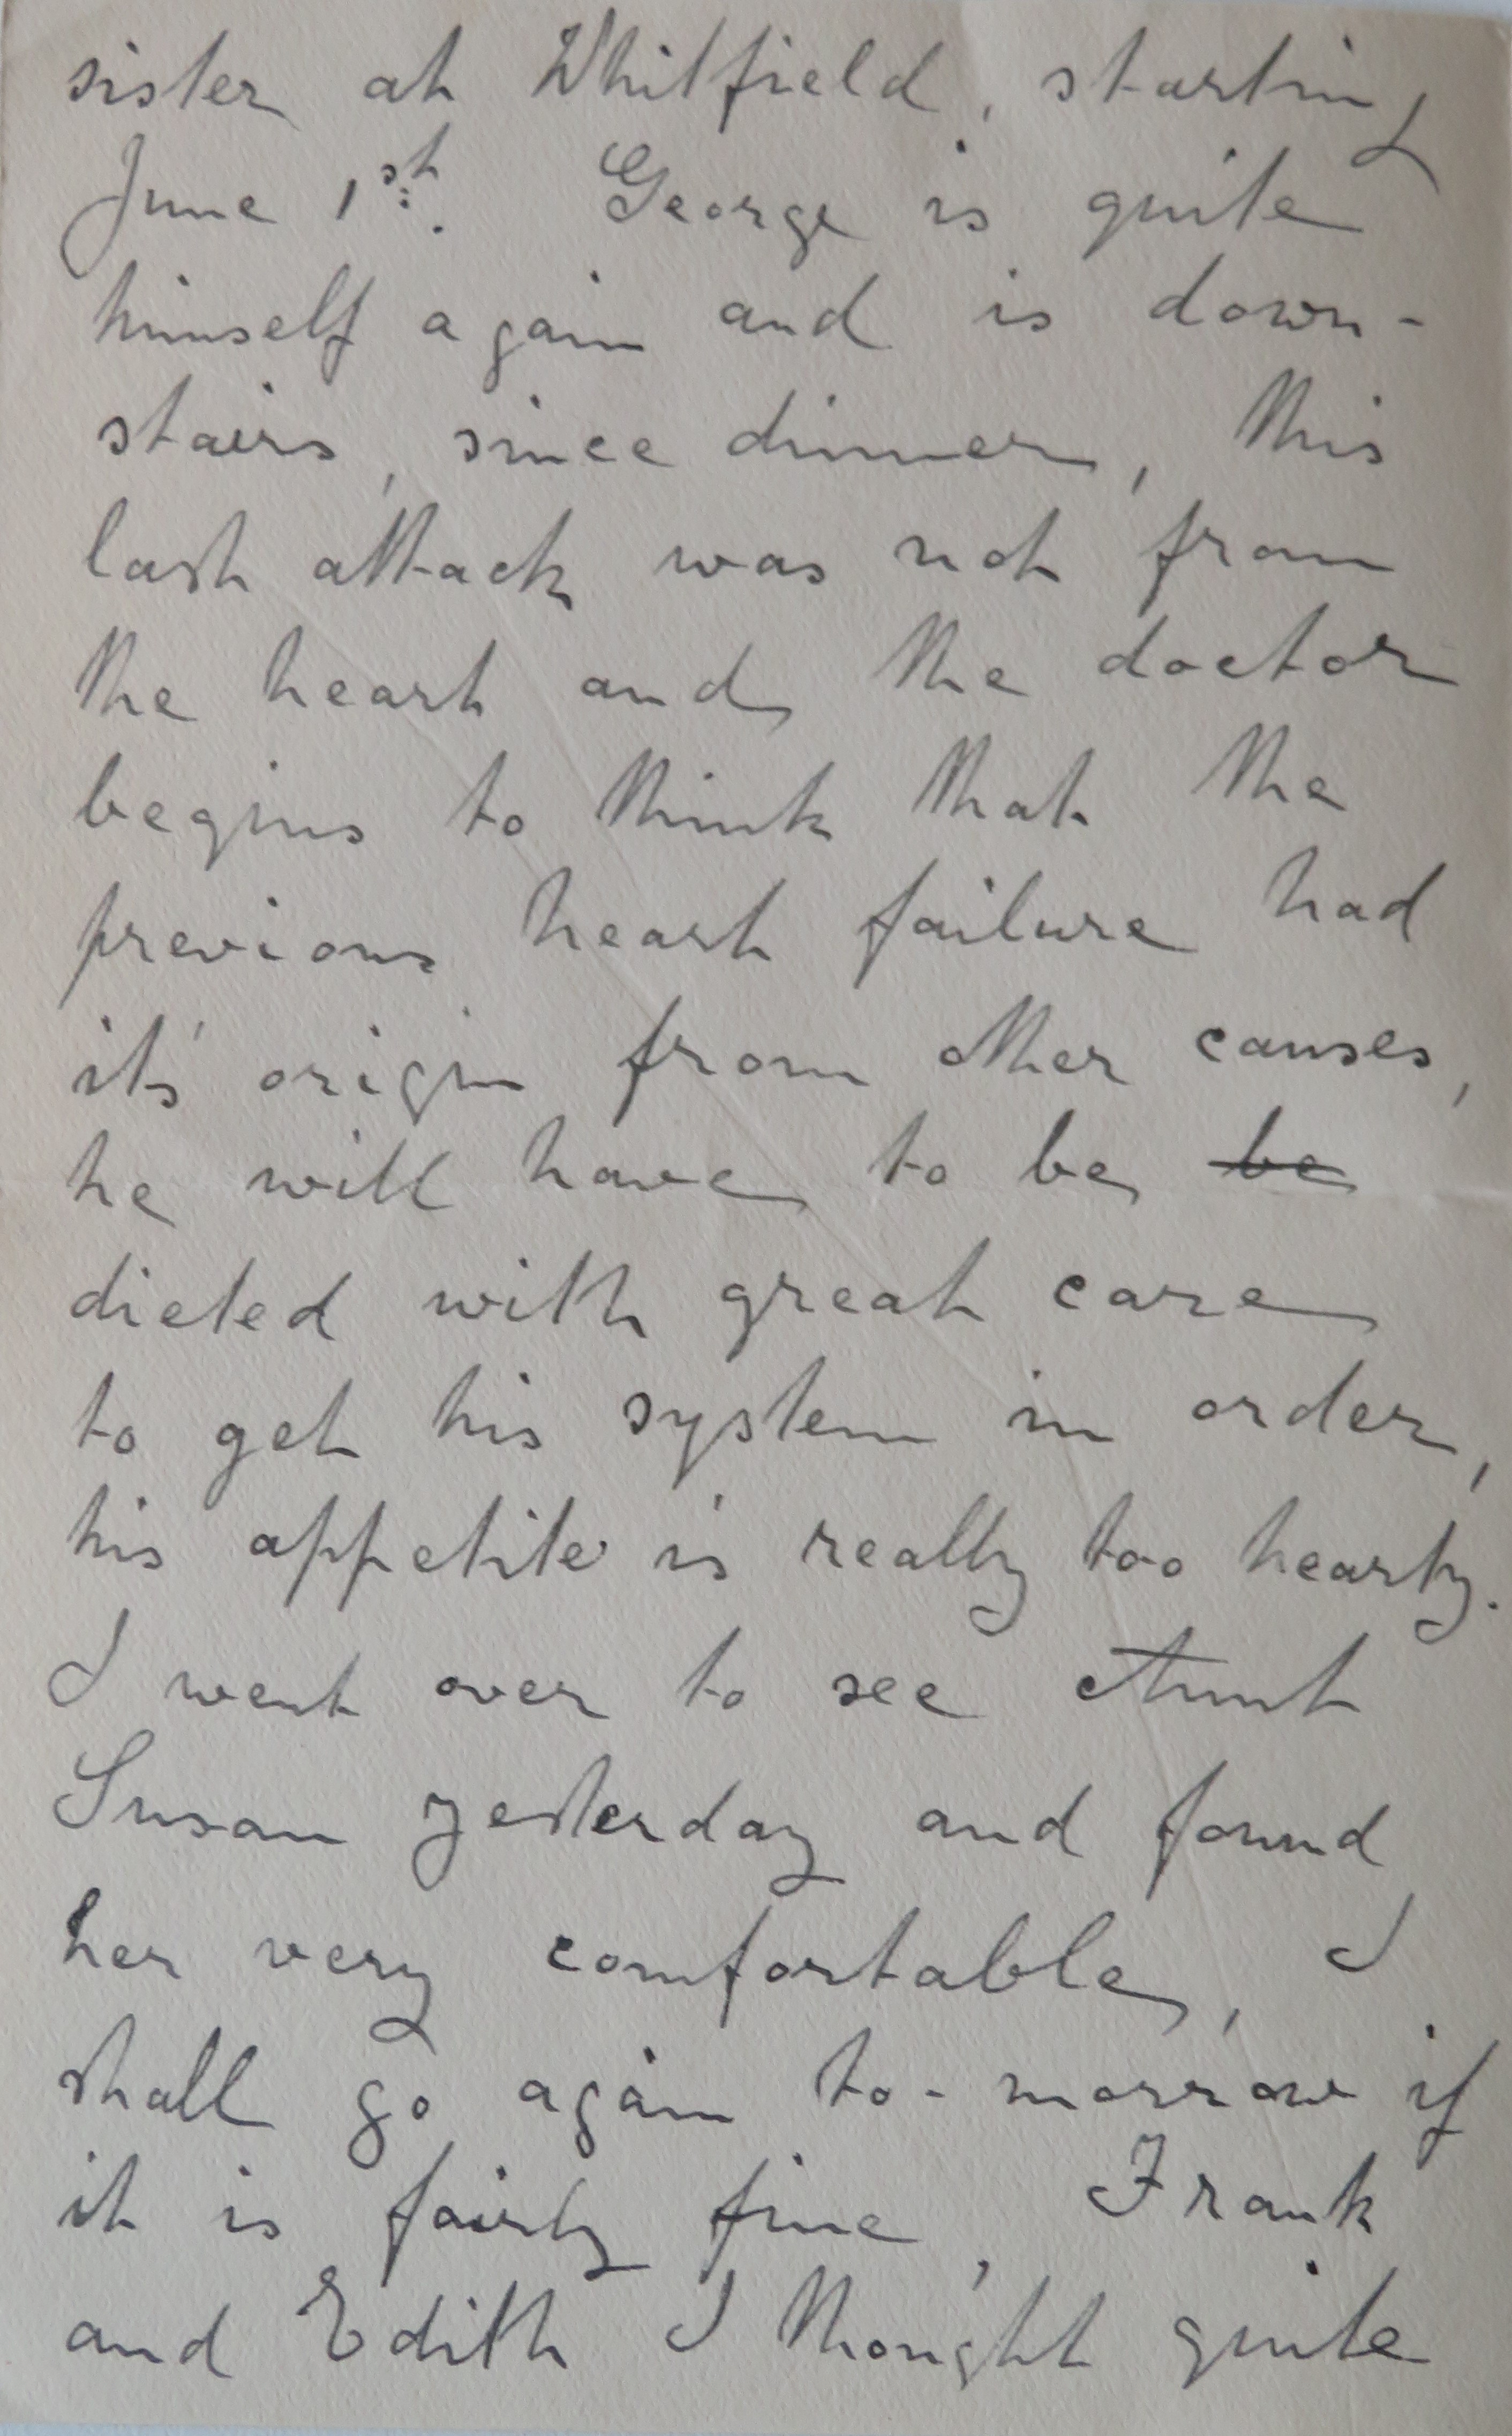 sister at Whitfield, starting
June 1st. George is quite
himself again and is down-
stairs, since dinner, this
last attack was not from
the heart and the doctor
begins to think that the
previous heart failure had
it's origin from other causes,
he will have to be ~~be~~
dieted with great care
to get his system in order,
his appetite is really too hearty.
I went over to see Aunt
Susan yesterday and found
her very comfortable, I
shall go again to-morrow if
it is fairly fine, Frank
and Edith I thought quite